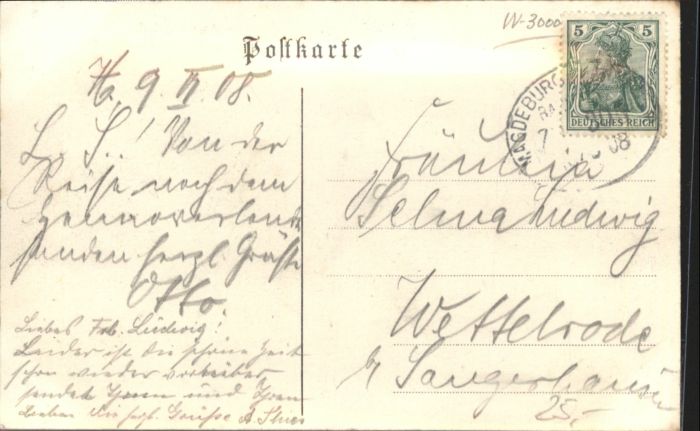 W-3000
Postkarte
5 5
DEUTSCHES REICH
MAGDEBURG
7 08
Ha, 9. IV. 08.
L. S.! Von der
Reise nach dem
Hannoverlande
senden herzl. Grüße
Otto.
Liebes Frl. Ludwig!
Leider ist die schöne Zeit
schon wieder vorüber
sendet Ihnen und Ihren
Lieben die hrzl. Grüsse A.
Fräulein
Selma Ludwig
Wettelrode
b/ Sangerhausen
25.-